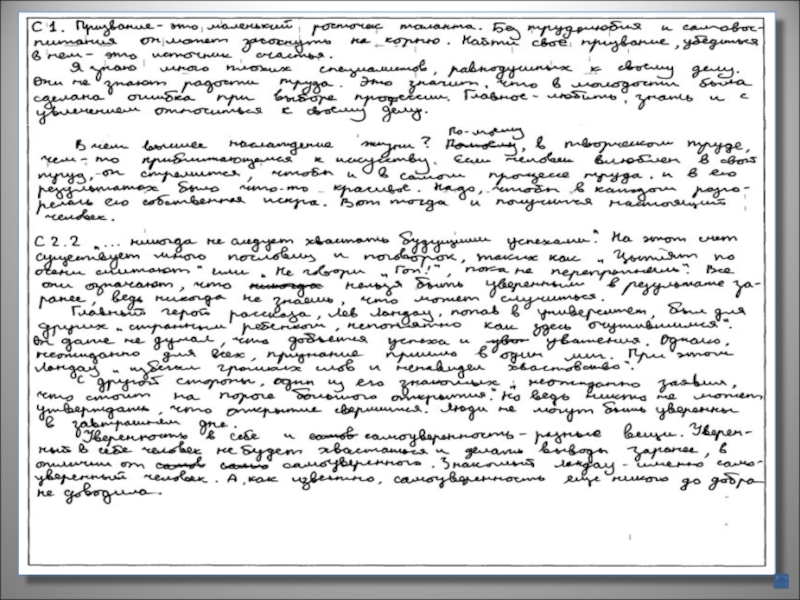 С 1. Призвание - это маленький росточек таланта. Без трудолюбия и самовос-
питания он может засохнуть на корню. Найти своё призвание, убедиться
в нем - это источник счастья.
Я знаю много плохих специалистов, равнодушных к своему делу.
Они не знают радости труда. Это значит, что в молодости была
сделана ошибка при выборе профессии. Главное - любить, знать и с
увлечением относиться к своему делу.
По-моему
В чем высшее наслаждение жизни? в творческом труде,
чем-то приближающемся к искусству. Если человек влюблен в свой
труд, он стремится, чтобы и в самом процессе труда, и в его
результатах было что-то красивое. Надо, чтобы в каждом разго-
релась его собственная искра. Вот тогда и получится настоящий
человек.
С 2.2 „... никогда не следует хвастать будущими успехами". На этот счет
существует много пословиц и поговорок, таких как „Цыплят по
осени считают" или „Не говори „Гоп!", пока не перепрыгнешь". Все
они означают, что никогда нельзя быть уверенным в результате за-
ранее, ведь никогда не знаешь, что может случиться.
Главный герой рассказа, Лев Ландау, попав в университет, был для
других „странным ребенком, непонятно как здесь очутившимся".
Он даже не думал, что добьется успеха и уважения. Однако,
неожиданно для всех, признание пришло в один миг. При этом
Ландау „избегал громких слов и ненавидел хвастовство".
С другой стороны, один из его знакомых „неожиданно заявил,
что стоит на пороге большого открытия". Но ведь никто не может
утверждать, что открытие свершится. Люди не могут быть уверены
в завтрашнем дне.
Уверенность в себе и самоуверенность - разные вещи. Уверен-
ный в себе человек не будет хвастаться и делать выводы заранее, в
отличии от самоуверенного. Знакомый Ландау - именно само-
уверенный человек. А, как известно, самоуверенность еще никого до добра
не доводила.